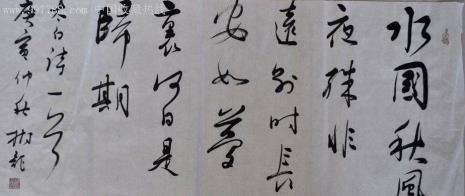 水國秋風
夜殊非
遠別时長
安如夢
裏何日是
歸期
太白诗一首
庚寅仲秋
中国收藏热线